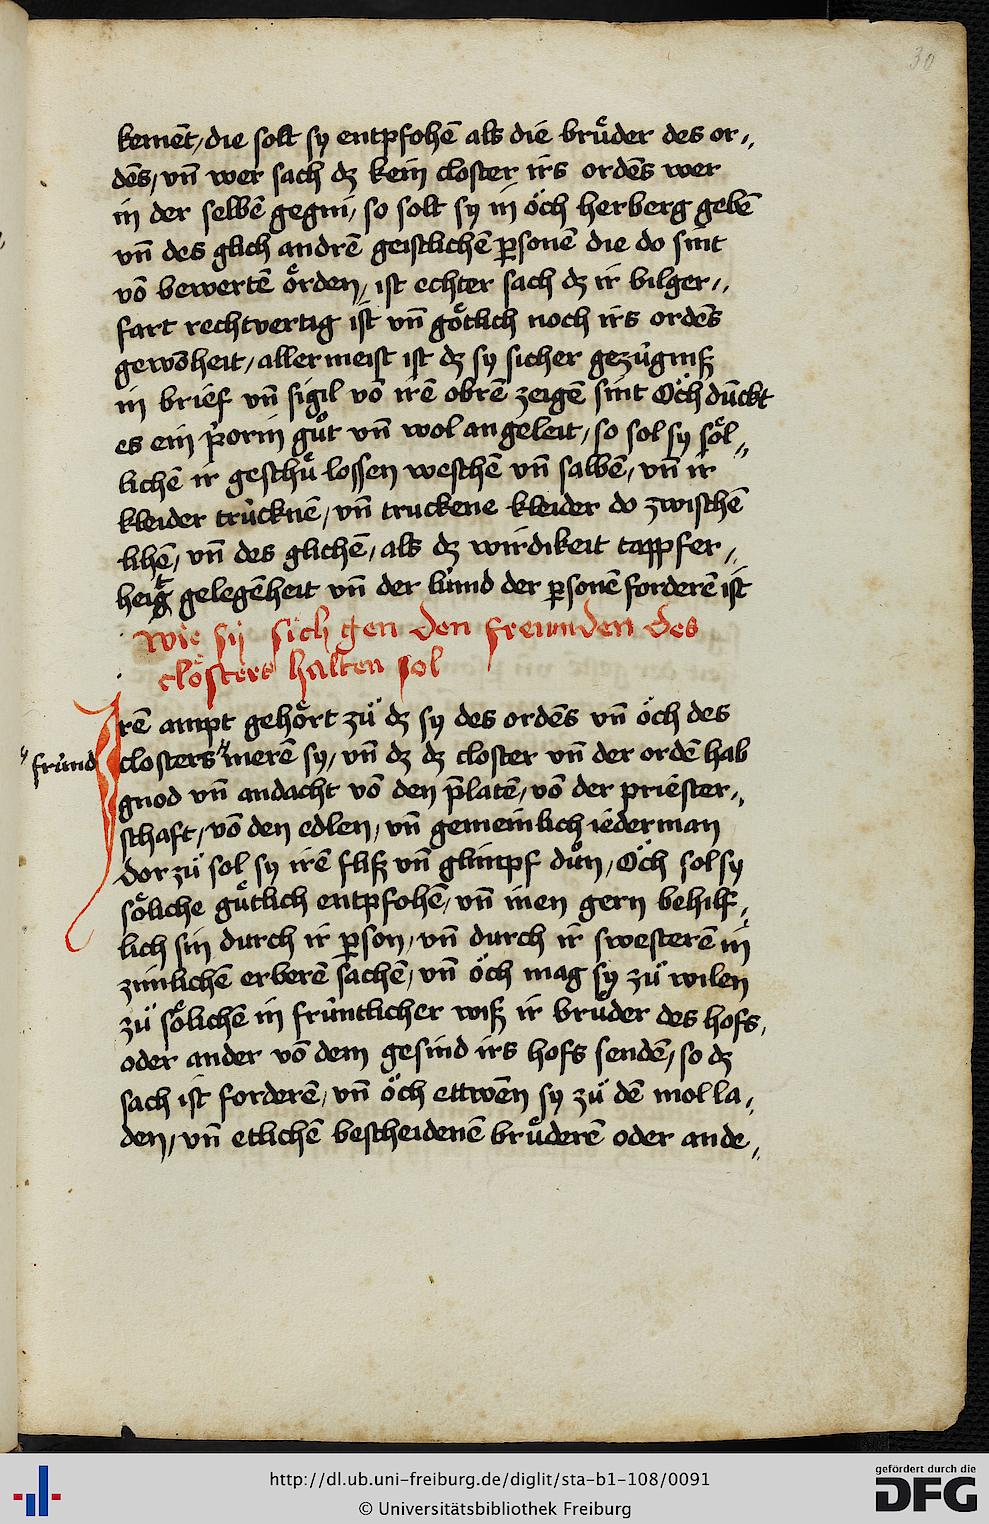 30
kemēt, die solt sy entpfohē als die brůder des or„
dēs, vn̄ wer sach dz kein closter irs ordēs wer
in der selbē gegni, so solt sy in öch herberg gebē
vn̄ des glich andrē geistlichē ꝑsonē die do sint
vō bewertē örden, ist echter sach dz ir bilger„
fart rechtvertig ist vn̄ götlich noch irs ordēs
gewōheit, aller meist ist dz sy sicher gezùgniß
in brief vn̄ sigil vō irē obrē zeigē sint Öch dùckt
es ein p̄orin gůt vn̄ wol an geleit, so sol sy söl„
lichē ir geschů lossen weschē vn̄ salbē, vn̄ ir
kleider trùcknē, vn̄ truckene kleider do zwischē
lihē, vn̄ des glichē, als dz wirdikeit tappfer„
heit gelegēheit vn̄ der lùmd der ꝑsonē forderē ist
wie sy sich gen den freunden des
closters halten sol
Irē ampt gehört zů dz sy des ordēs vn̄ öch des
closters merē sy, vn̄ dz dz closter vn̄ der ordē hab
frùnd
gnod vn̄ andacht vō den p̄latē, vō der priester„
schaft, vō den edlen, vn̄ gemeinlich iederman
dor zů sol sy irē fliß vn̄ glimpf důn, Öch sol sy
söliche gůtlich entpfohē, vn̄ inen gern behilf„
lich sin durch ir ꝑson, vn̄ durch ir swesterē in
zimlichē erberē sachē, vn̄ öch mag sy zů wilen
zů sölichē in frùntlicher wiß ir brůder des hofs,
oder ander vō dem gesind irs hofs sendē, so dz
sach ist forderē, vn̄ öch ettwēn sy zů dē mol la„
den, vn̄ etlichē bescheidenē brůderē oder ande„
http://dl.ub.uni-freiburg.de/diglit/sta-b1-108/0091
© Universitätsbibliothek Freiburg
gefördert durch die
DFG